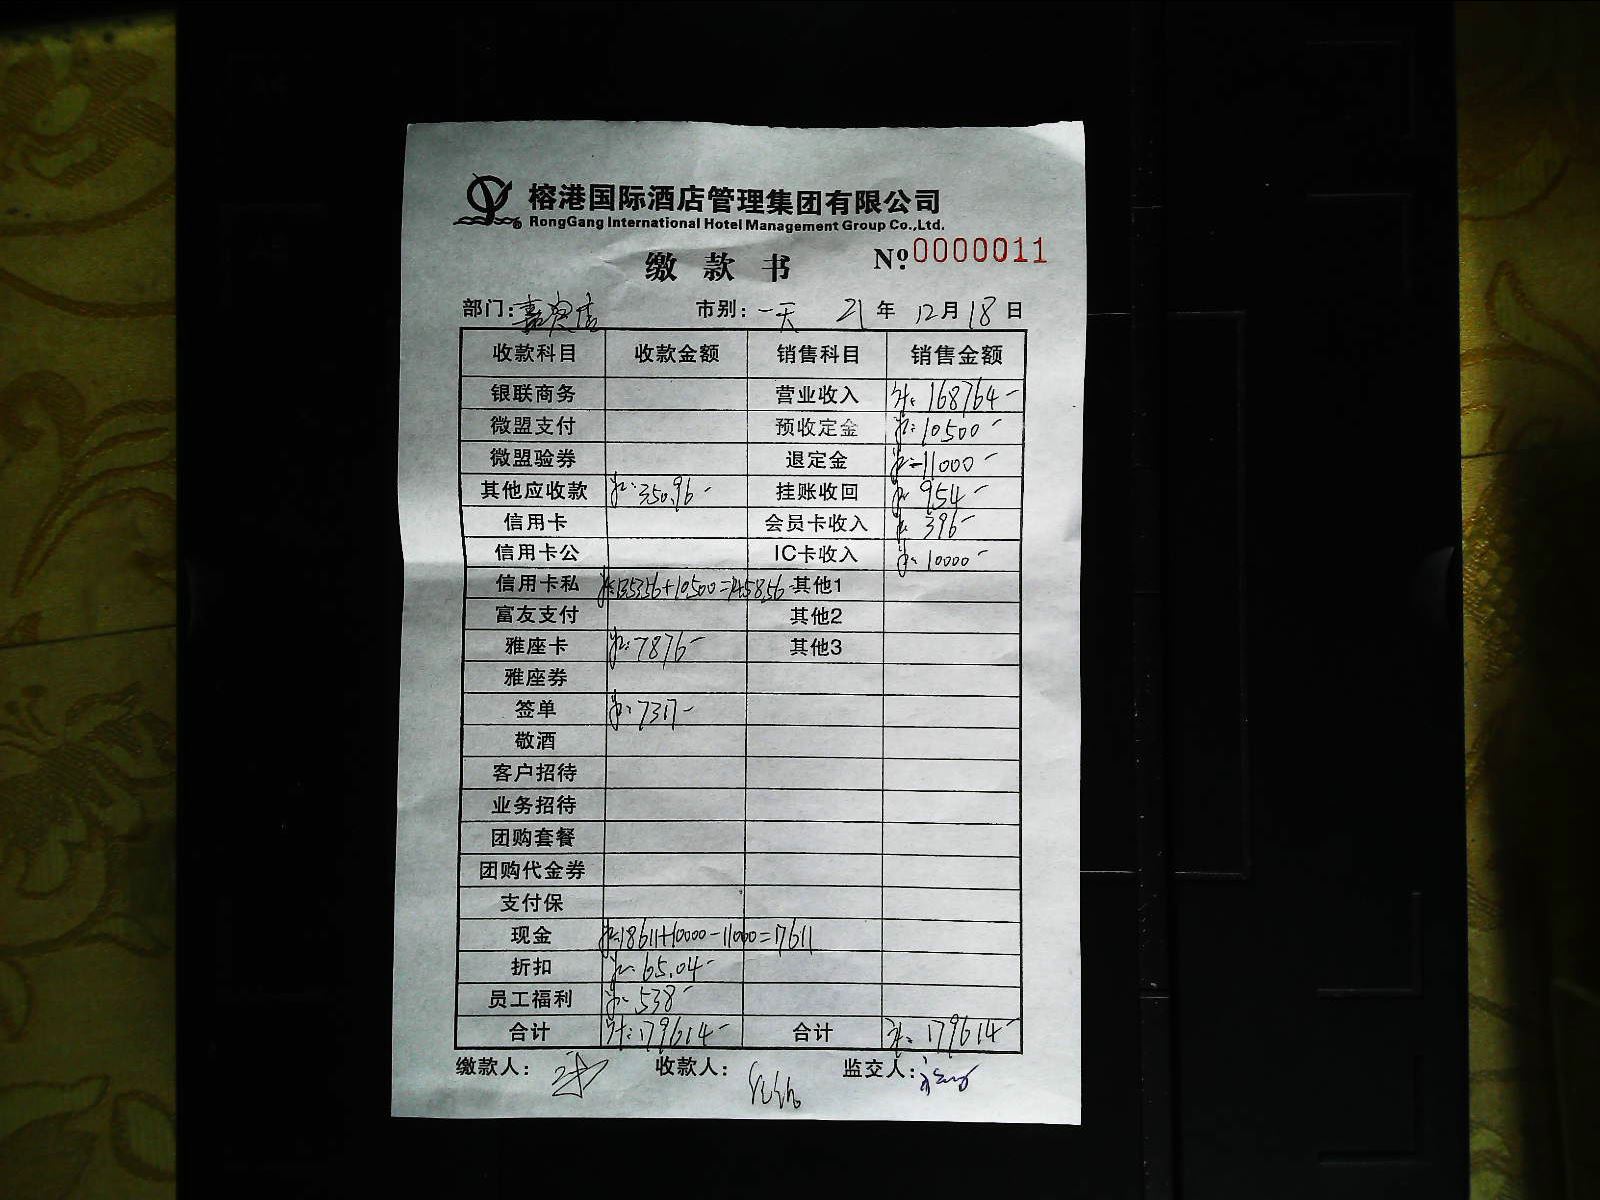 榕港国际酒店管理集团有限公司
RongGang International Hotel Management Group Co.,Ltd.
缴款书 Nº.0000011
部门: 市别:一天 21年12月18日
收款科目 收款金额 销售科目 销售金额
银联商务 营业收入 计:168764-
微盟支付 预收定金 10500-
微盟验券 退定金 -11000-
其他应收款 350.96- 挂账收回 954-
信用卡 会员卡收入 396-
信用卡公 IC卡收入 10000-
信用卡私 135356+10500=145856 其他1
富友支付 其他2
雅座卡 7876- 其他3
雅座券
签单 7317-
敬酒
客户招待
业务招待
团购套餐
团购代金券
支付保
现金 18611+10000-11000=17611
折扣 65.04-
员工福利 538-
合计 计:179614- 合计 计:179614-
缴款人: 收款人: 监交人: